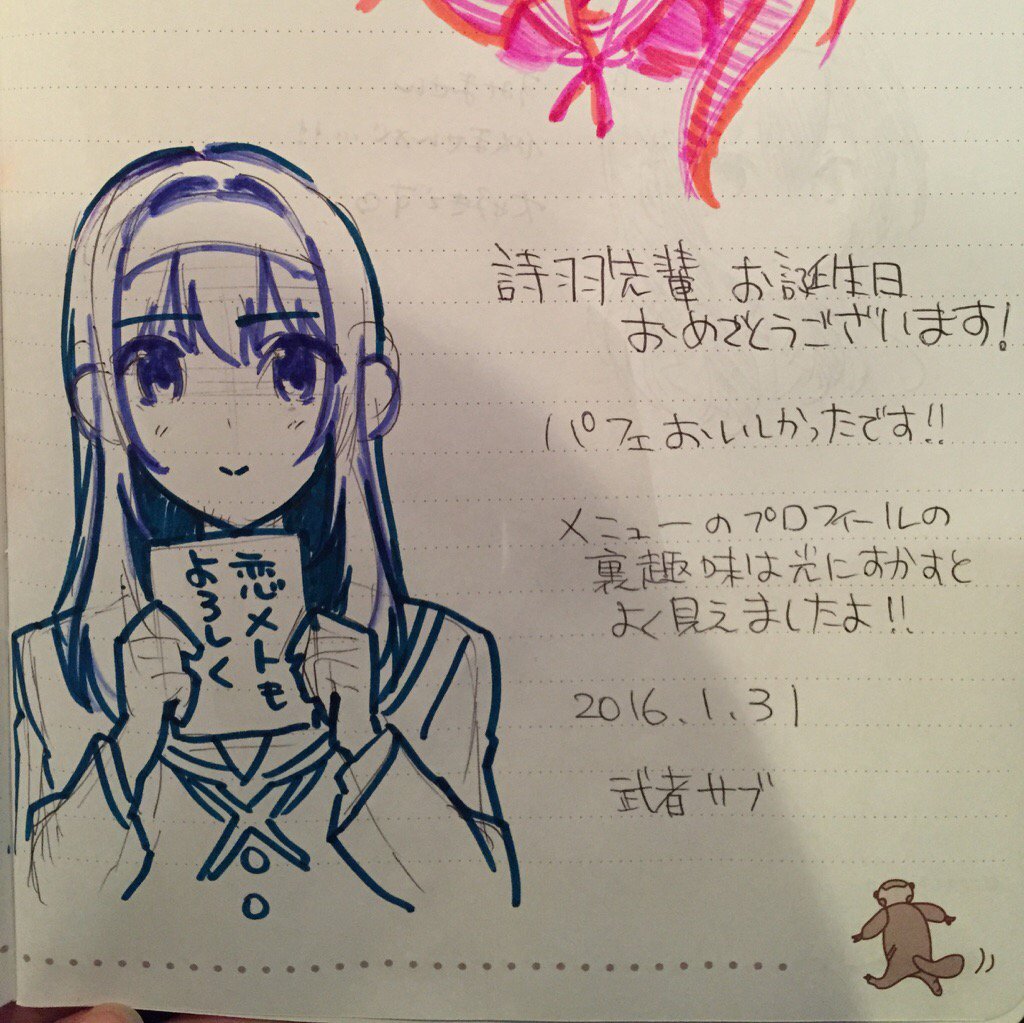 詩羽先輩 お誕生日
おめでとうございます!
パフェおいしかったです!!
メニューのプロフィールの
裏趣味は光にすかすと
よく見えましたよ!!
2016.1.31
武者サブ
恋メトも
よろしく